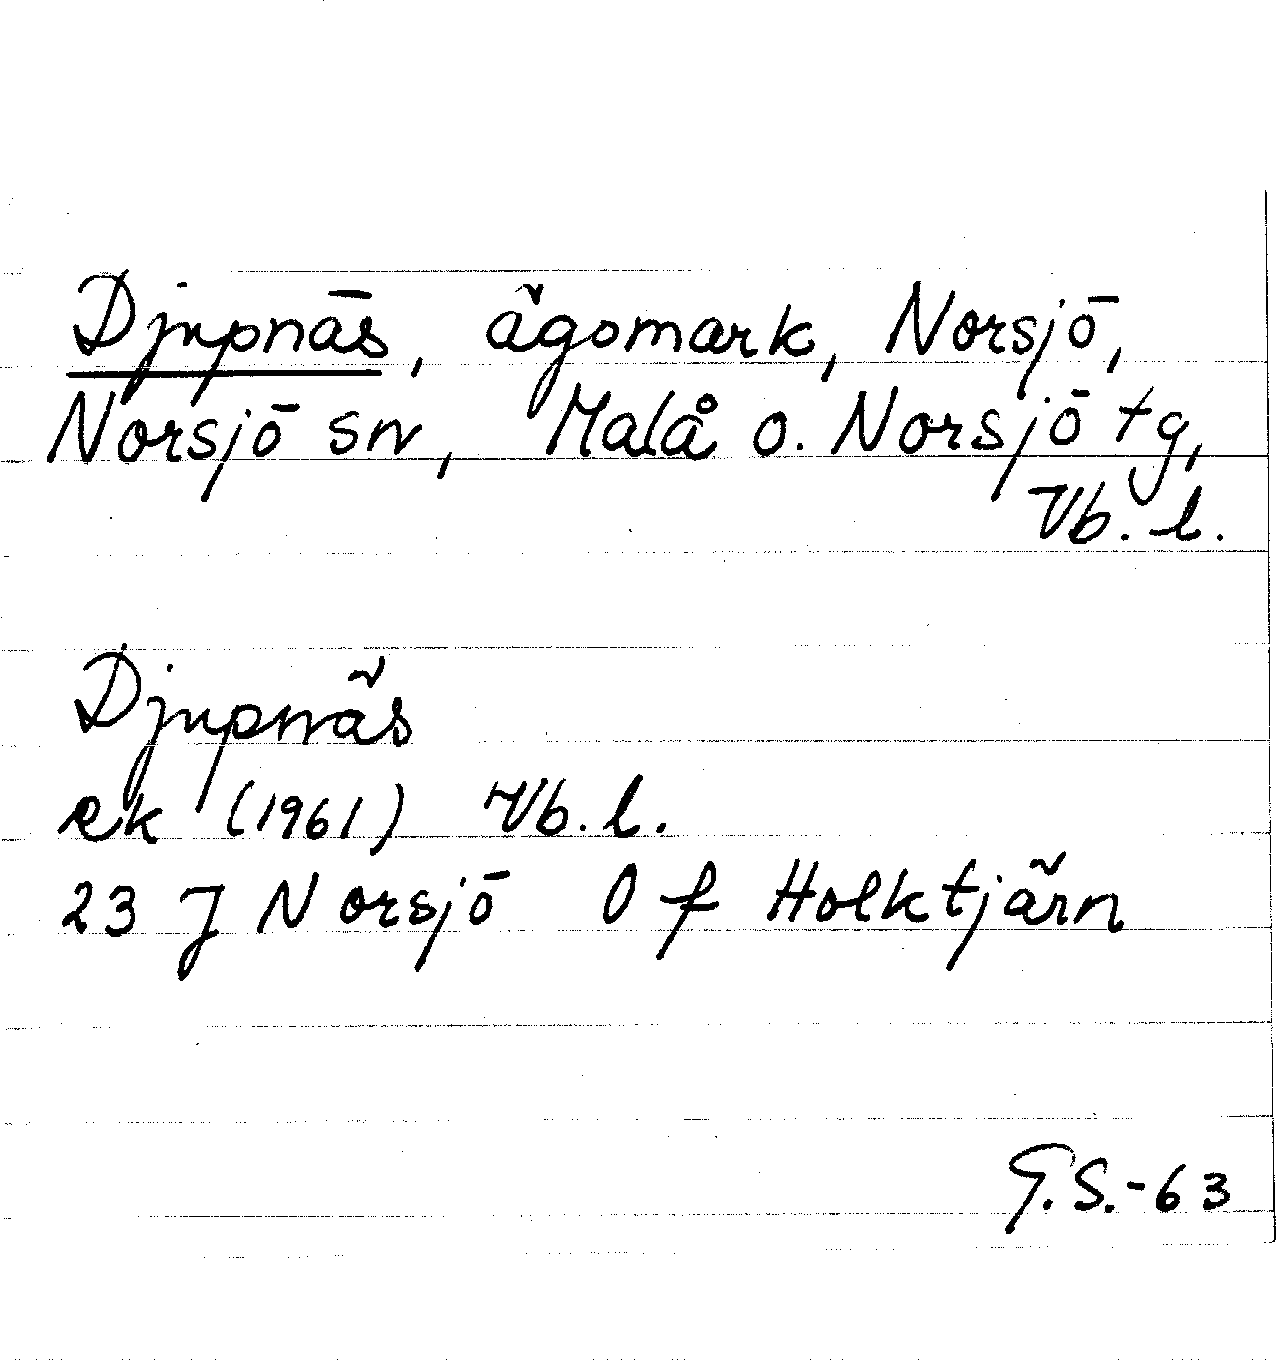 Djupnäs, ägomark, Norsjö,
Norsjö sn, Malå o. Norsjö tg,
Vb. l.
Djupnäs
ek (1961) Vb. l.
23 J Norsjö O f Holktjärn
G.S.-63